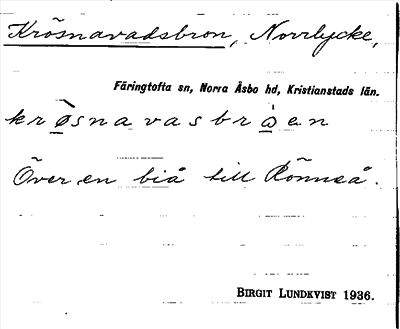 Krösnavadsbron, Norrlycke,
Färingtofta sn, Norra Åsbo hd, Kristianstads län.
krø̀snavasbråen
Över en biå till Rönneå.
BIRGIT LUNDKVIST 1936.